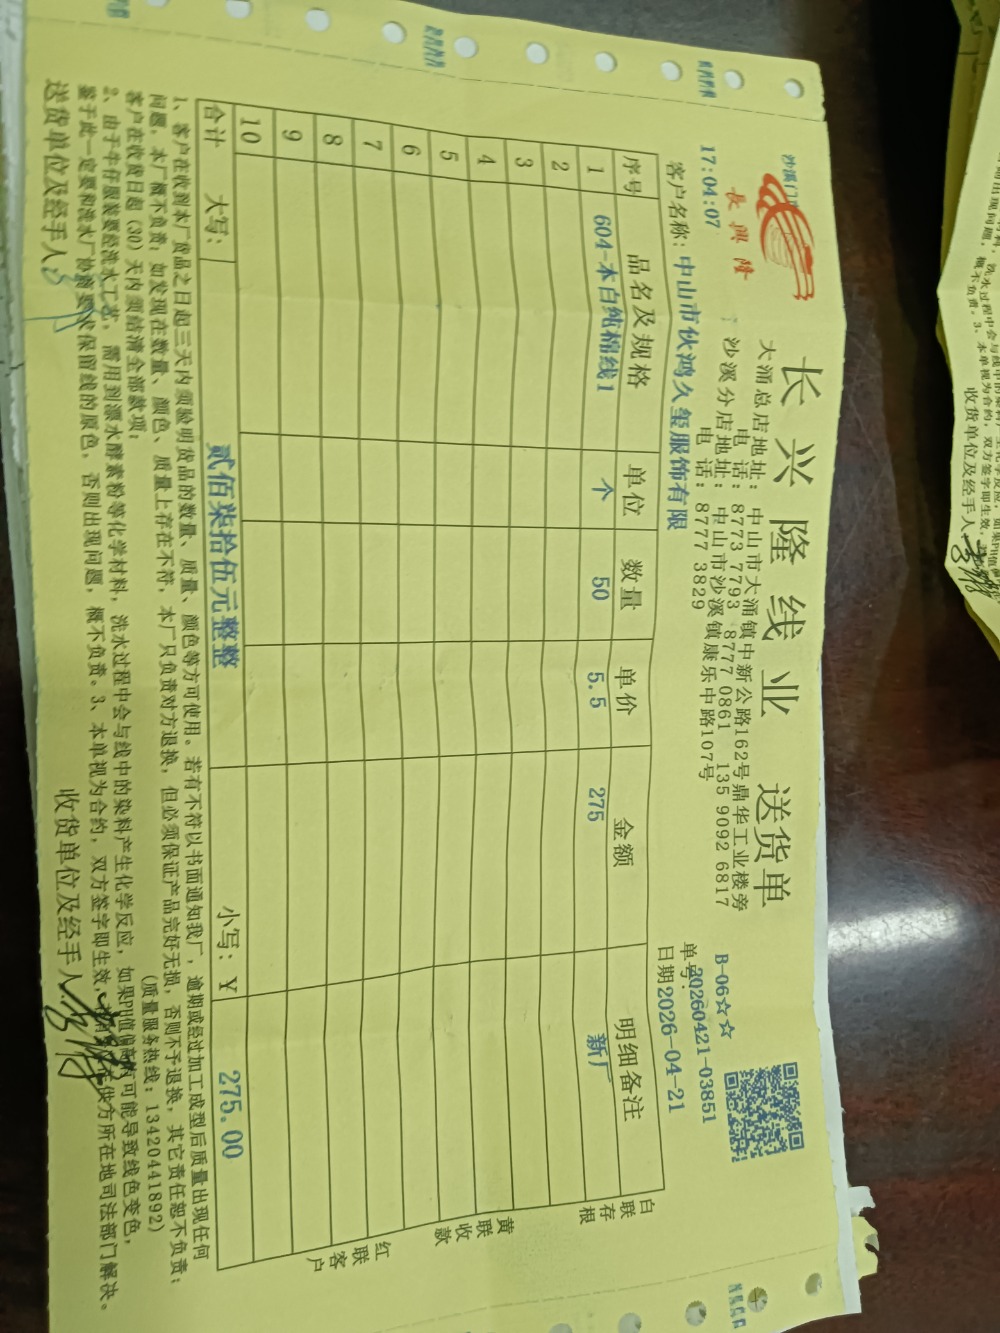 沙溪门
長興隆
长兴隆线业 送货单
大涌总店地址：中山市大涌镇中新公路162号鼎华工业楼旁
电话：8773 7793 8777 0861 135 9092 6817
沙溪分店地址：中山市沙溪镇康乐中路107号
电话：8777 3829
B-06☆☆
17:04:07
单号：20260421-03851
客户名称：中山市伙鸿久玺服饰有限
日期2026-04-21
序号 品名及规格 单位 数量 单价 金额 明细备注
1 604-本白纯棉线1 个 50 5.5 275 新厂
2
3
4
5
6
7
8
9
10
合计 大写： 贰佰柒拾伍元整整 小写：￥ 275.00
白联存根
黄联收款
红联客户
1、客户在收到本厂货品之日起三天内须验明货品的数量、质量、颜色等方可使用。若有不符以书面通知我厂，逾期或经过加工成型后质量出现任何
问题，本厂概不负责；如发现在数量、颜色、质量上存在不符，本厂只负责对方退换，但必须保证产品完好无损，否则不予退换，其它责任恕不负责；
客户在收货日起（30）天内须结清全部款项； （质量服务热线：13420441892）
2、由于牛仔服装要经洗水工艺，需用到漂水酵素粉等化学材料，洗水过程中会与线中的染料产生化学反应，如果PH值偏高有可能导致线色变色，
鉴于此一定要和洗水厂协商要求保留线的原色，否则出现问题，概不负责。3、本单视为合约，双方签字即生效，在供方所在地司法部门解决。
送货单位及经手人： 收货单位及经手人：
洗水过程中会与线中的
出现问题，概不负责。3、本单视为合约，双方签字即生效，
收货单位及经手人